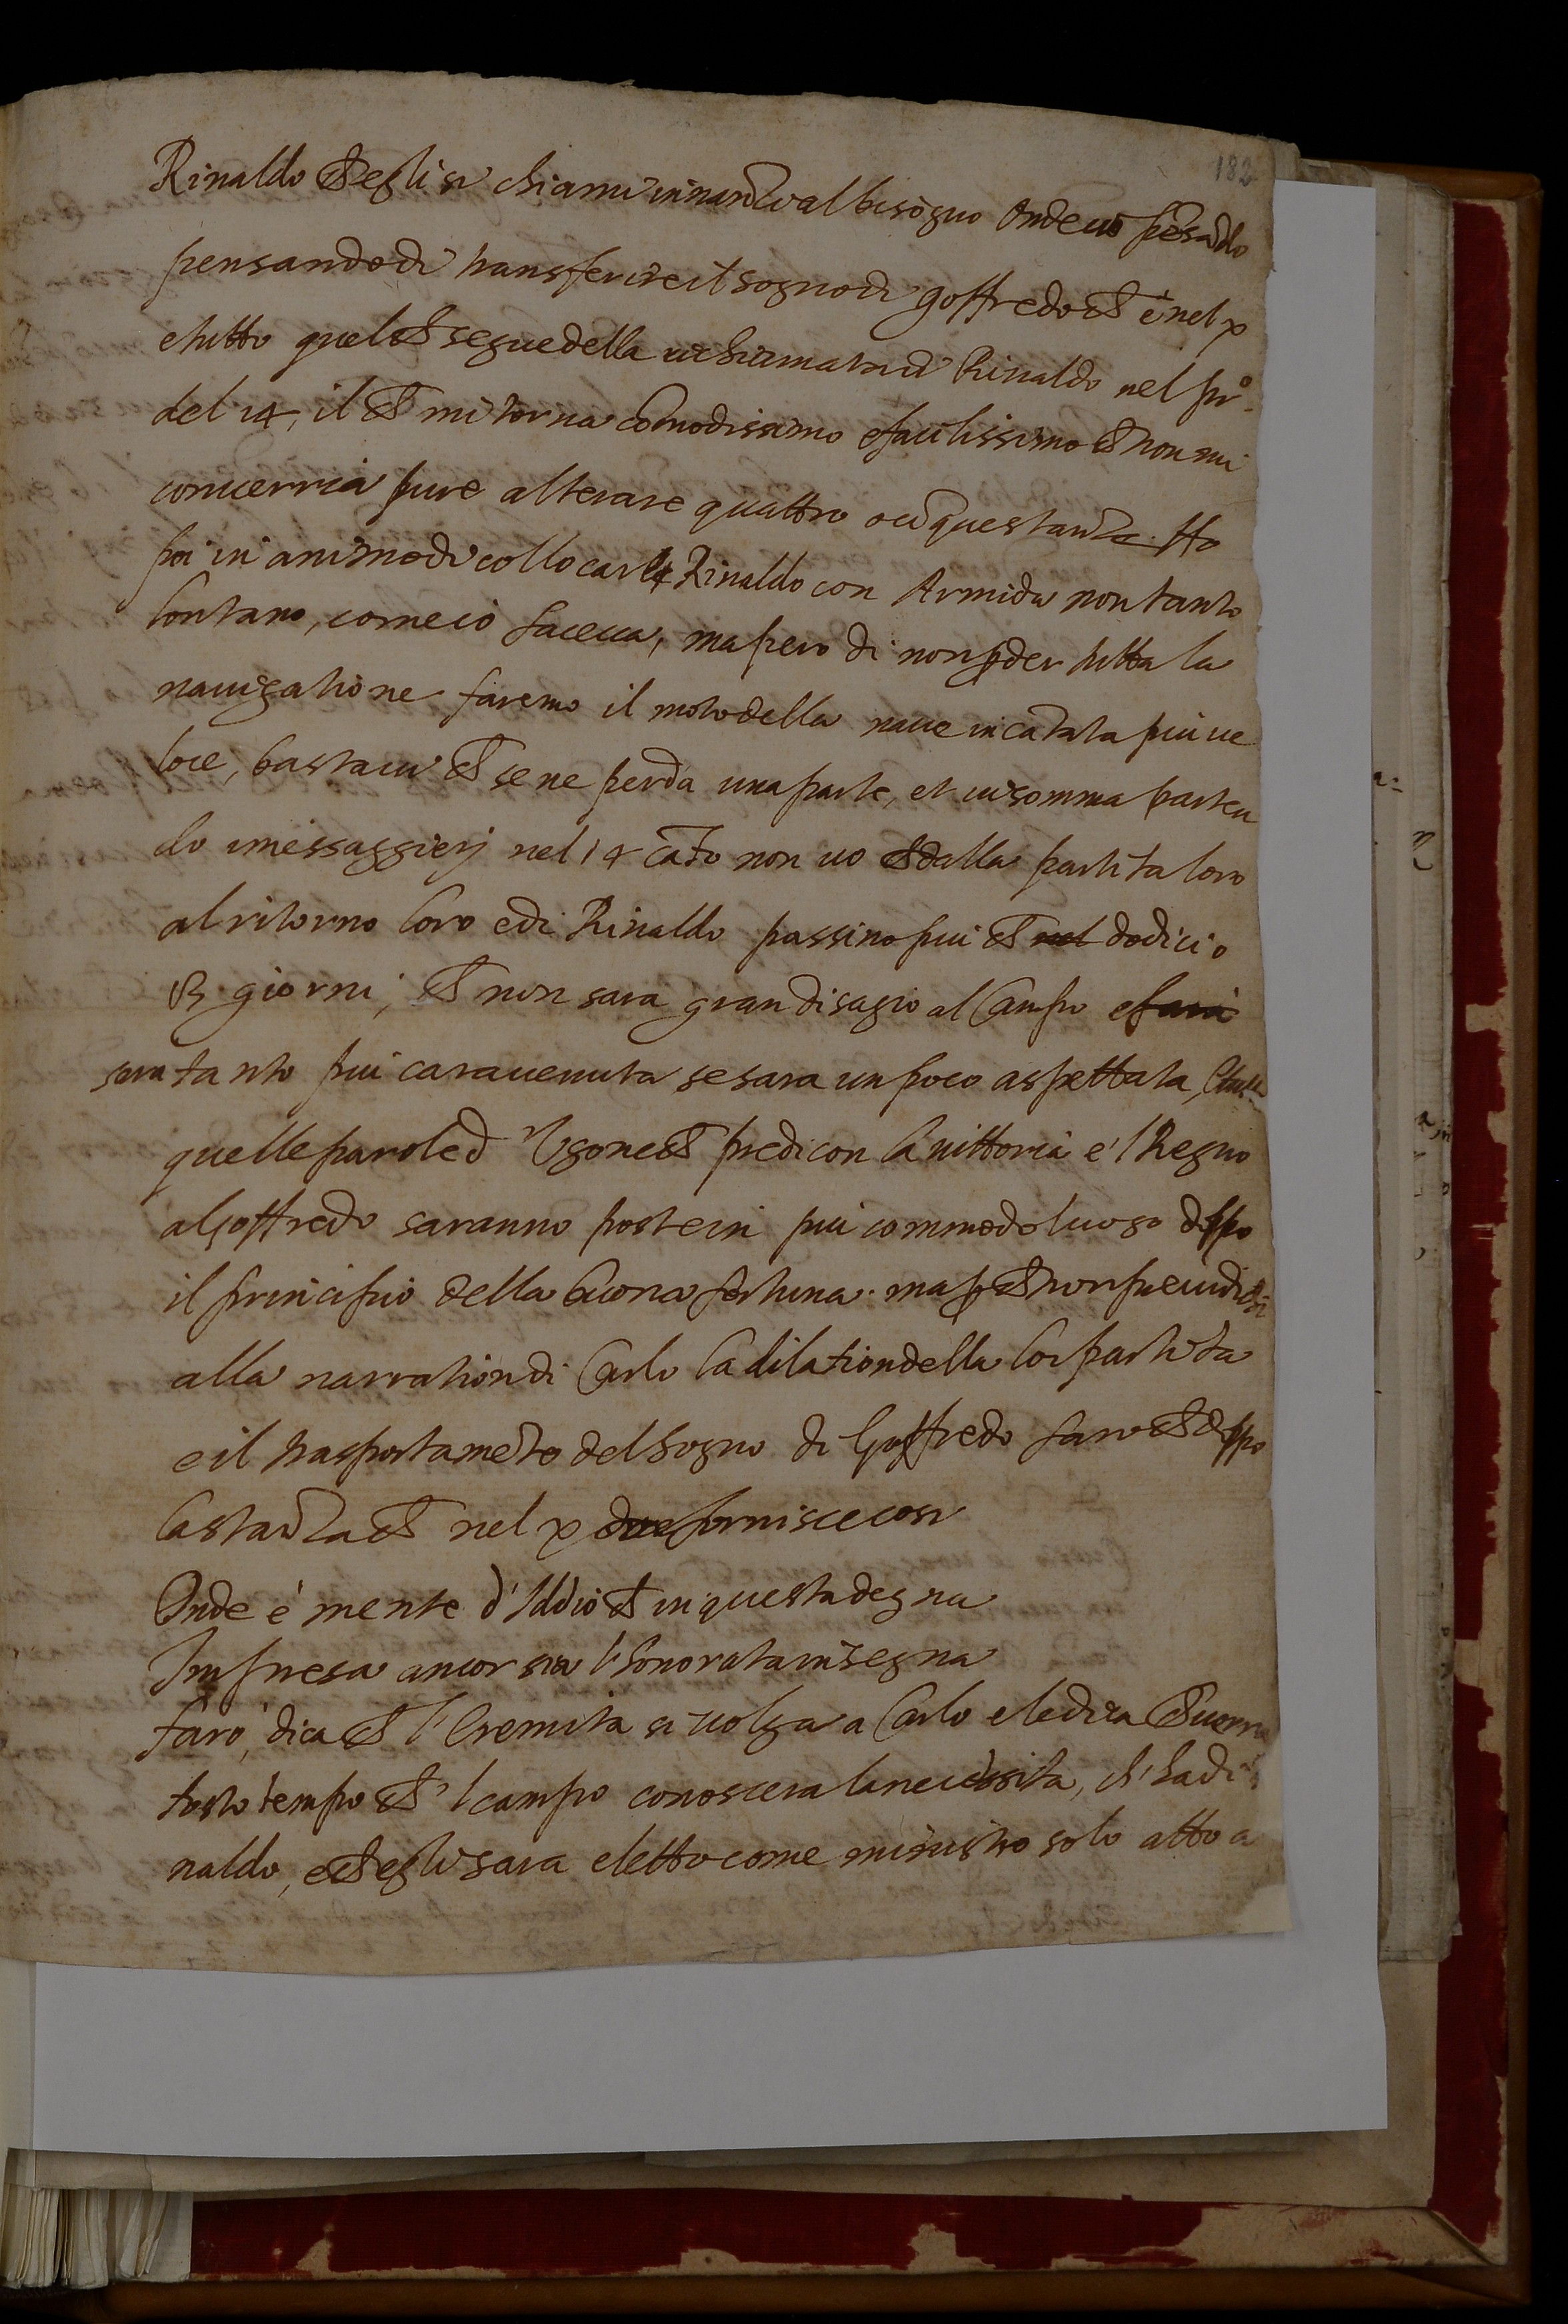 182
Rinaldo ch'egli si chiami innanzi al bisogno Onde vo pẽsãdo
pensando di transferire il sogno di goffredo ch'è nel p̃º
e tutto quel ch segue della richiamata di Rinaldo nel prº
del 14, il ch mi torna cõmodissimo e facilissimo ch non mi
converria pure alterare quattro o cinque stanze. Ho
poi in animo di collocar Rinaldo con Armida non tanto
lontano, come io faceva, ma pero di non ꝑder tutta la
navigatione faremo il moto della nave incãtata piu ve
loce, bastavi ch se ne perda una parte, et in somma parten
do i messaggierj nel 14 cãto non vo ch dalla partita loro
al ritorno loro e di Rinaldo passino piu ch nel dodici o
13 giorni; ch non sara gran disagio al Campo e fara
sara tanto piu cara venuta se sara un poco aspettata,
quelle parole d'Ugone ch predicon la vittoria e'l Regno
a Goffredo saranno poste in piu commodo luogo doppo
il principio della buona fortuna. ma ꝑch non pregiudichi
alla narration di Carlo la dilation della lor partita
e il trasportamẽto del Sogno di Goffredo faro ch doppo
la stanza ch nel p̃º fornisce cosi
Onde è mente d'Iddio ch in questa degna
Impresa ancor sia l'honorata insegna
farò, dica ch l'Eremita si volga a Carlo e le dica ch verra
tosto tempo ch'l campo conoscera la necessita, ch'ha di
naldo, e ch egli sara eletto come ministro solo atto a